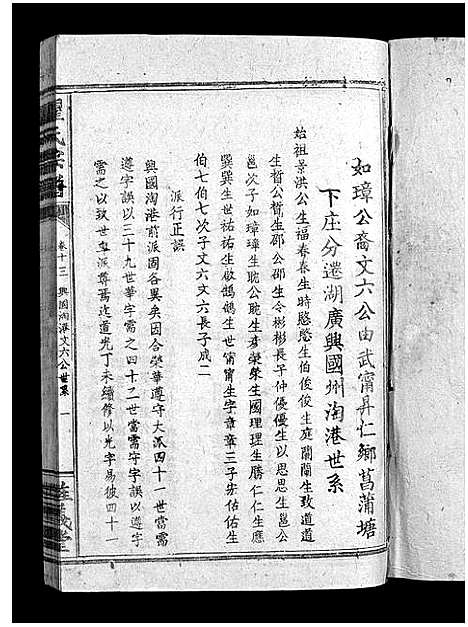 如璋公裔文六公由武甯昇仁鄉菖蒲塘
下庄分遷湖廣興國州淘港世系
始祖景洪公生福春春生時愍愍生伯俊俊生庭蘭蘭生致道道
生晢公晢生邵公邵生令彬彬長子仲優優生以思思生邕公
邕次子如璋璋生耽公耽生彥榮榮生國理理生勝仁仁生應
巽巽生世祐祐生啟鵠鵠生世甯甯生字章章三子安佑佑生
伯七伯七次子文六文六長子成二
派行正誤
興國淘港前派固各異矣因合榮華遵守大派四十一世當需
遵字誤以三十九世華字需之四十二世當需守字誤以遵字
需之以致世卑派尊焉迄道光丁未續修以光字易彼四十一
宗譜
卷十三
興國淘港文六公世系
一